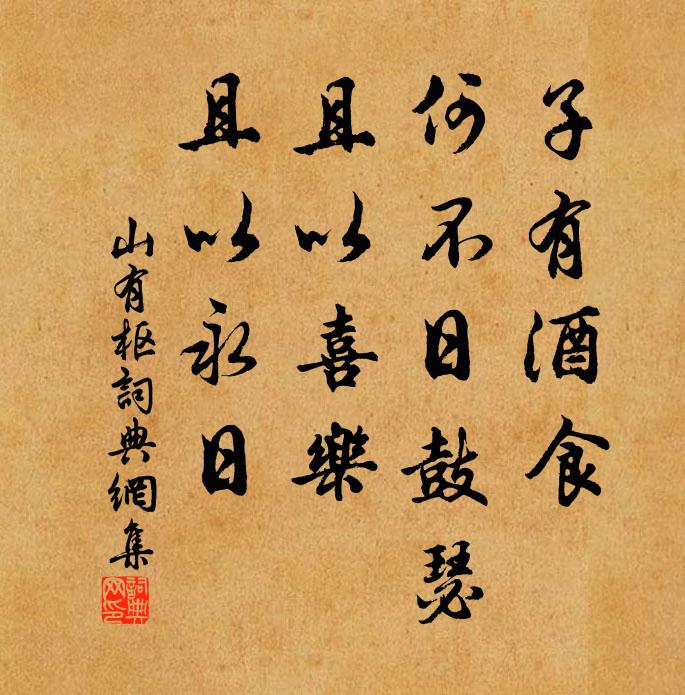 子有酒食
何不日鼓瑟
且以喜樂
且以永日
山有枢詞典網集
詞典
网印